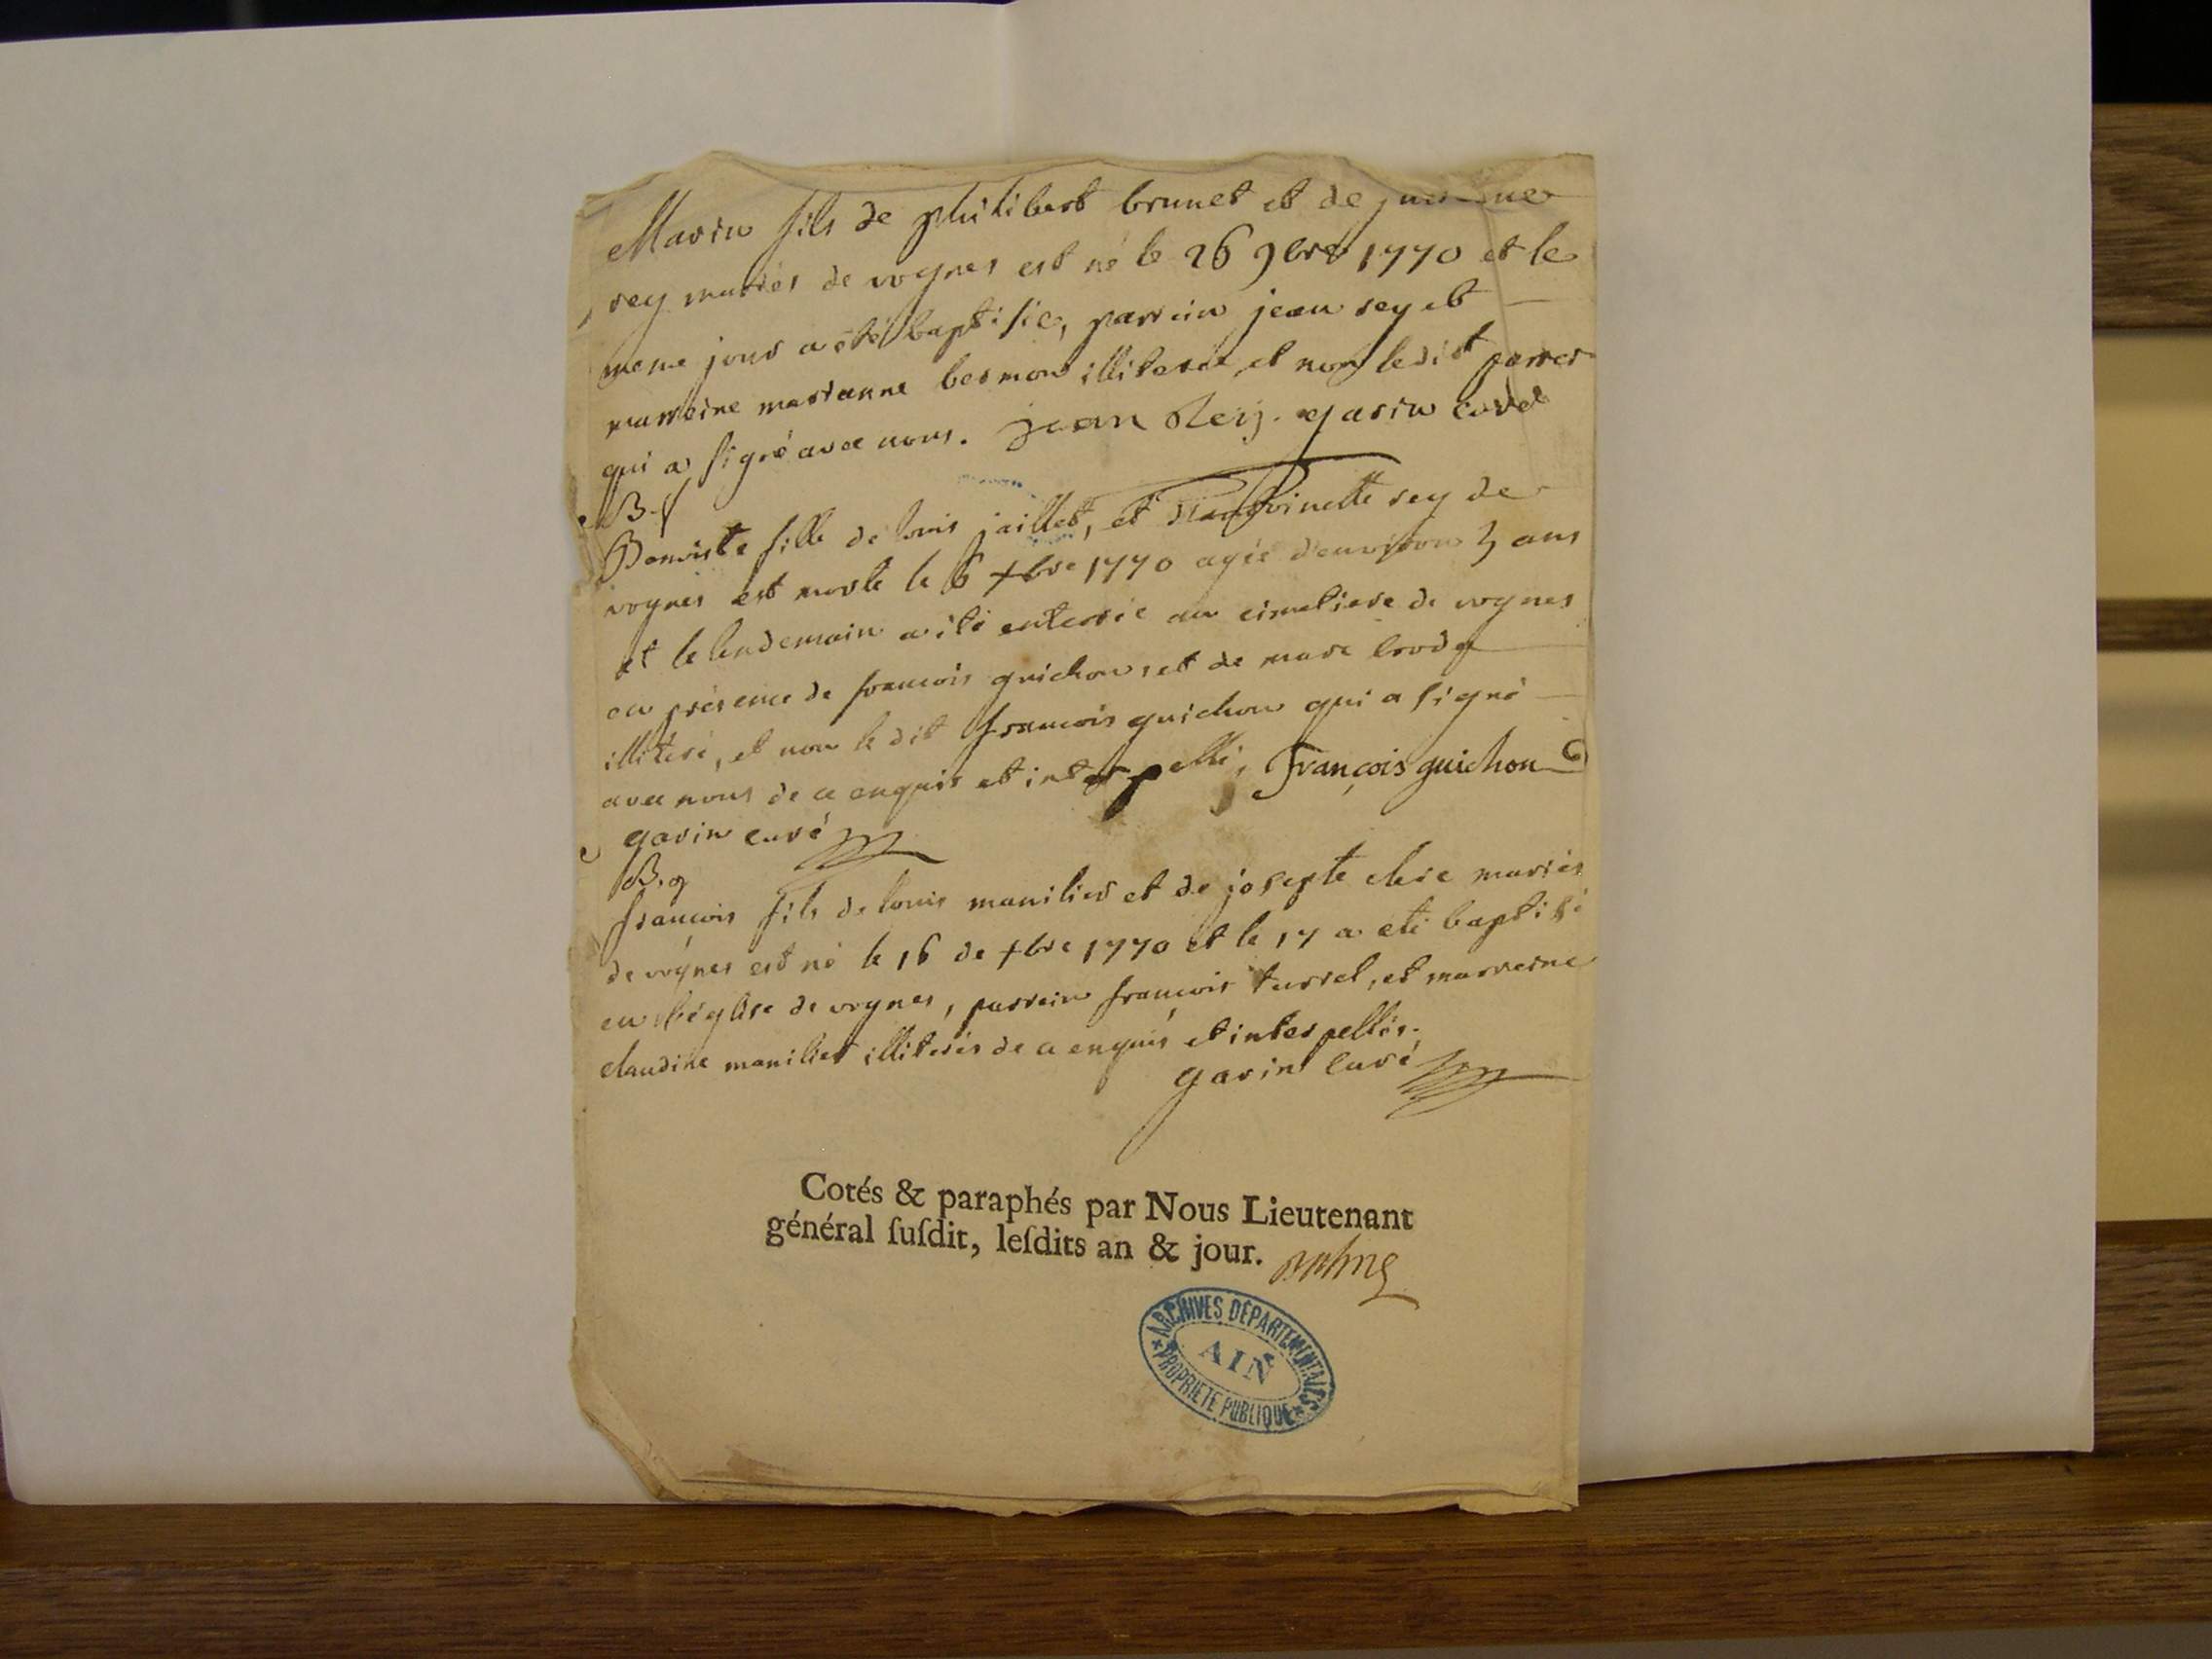 Marin fils de philibert brunet et de
rey mariés de vognes est né le 26 9bre 1770 et le
meme jour a été baptisé, parrein jean rey et
marreine marianne bermon illiteré et non ledist parrer
qui a signé avec nous. jean Reÿ. garin curé
B.
Benoiste fille de louis jaillet, et d'anthoinette rey de
vognes est morte le 6 xbre 1770 agée d'environ 3 ans
et le lendemain a été enterrée au cimetiere de vognes
en présence de francois guichon, et de marc
illiteré, et non le dit francois guichon qui a signé
avec nous de ce enquis et interpellé, François guichon
garin curé
B. 9
francois fils de louis manilier et de josepte clerc mariés
de vognes est né le 16 de xbre 1770 et le 17 a eté baptisé
en l'église de vognes, parrein françois turrel, et marreine
claudine manilier illiterés de ce enquis et interpellés.
garin curé
Cotés & paraphés par Nous Lieutenant
général susdit, lesdits an & jour.
ARCHIVES DÉPARTEMENTALES
AIN
PROPRIÉTÉ PUBLIQUE